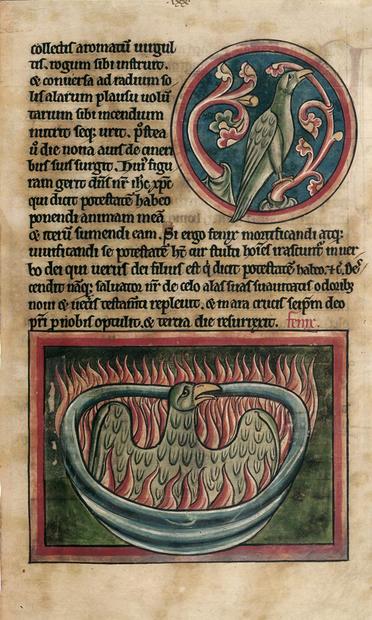 collectis aromatū uirgul
tis. rogum sibi instruit.
& conuersa ad radium so
lis alarum plausu uolū
tarium sibi incendium
nutrit seq; urit. postea
ū die nona auis de cineri
bus suis surgit. Huiꝰ figu
ram gerit dn̄s nr̄ ihc xp̄c
qui dicit potestatē habeo
ponendi animam meā
& iterū sumendi eam. Si ergo fenix mortificandi atq;
uiuificandi se potestatē h̄t cur stulti hoīes irascunt᷑ in uer
bo dei qui uerus dei filius est q̇ dicit potestatē habeo. &c̄. Des
cendit nāq; saluator nr̄ de celo alas suas suauitatis odorib;
noui & uet̄is testam̄ti repleuit. & in ara crucis seip̄m deo
pr̄i ꝓ nobis optulit. & tercia die resurrexit. fenix.